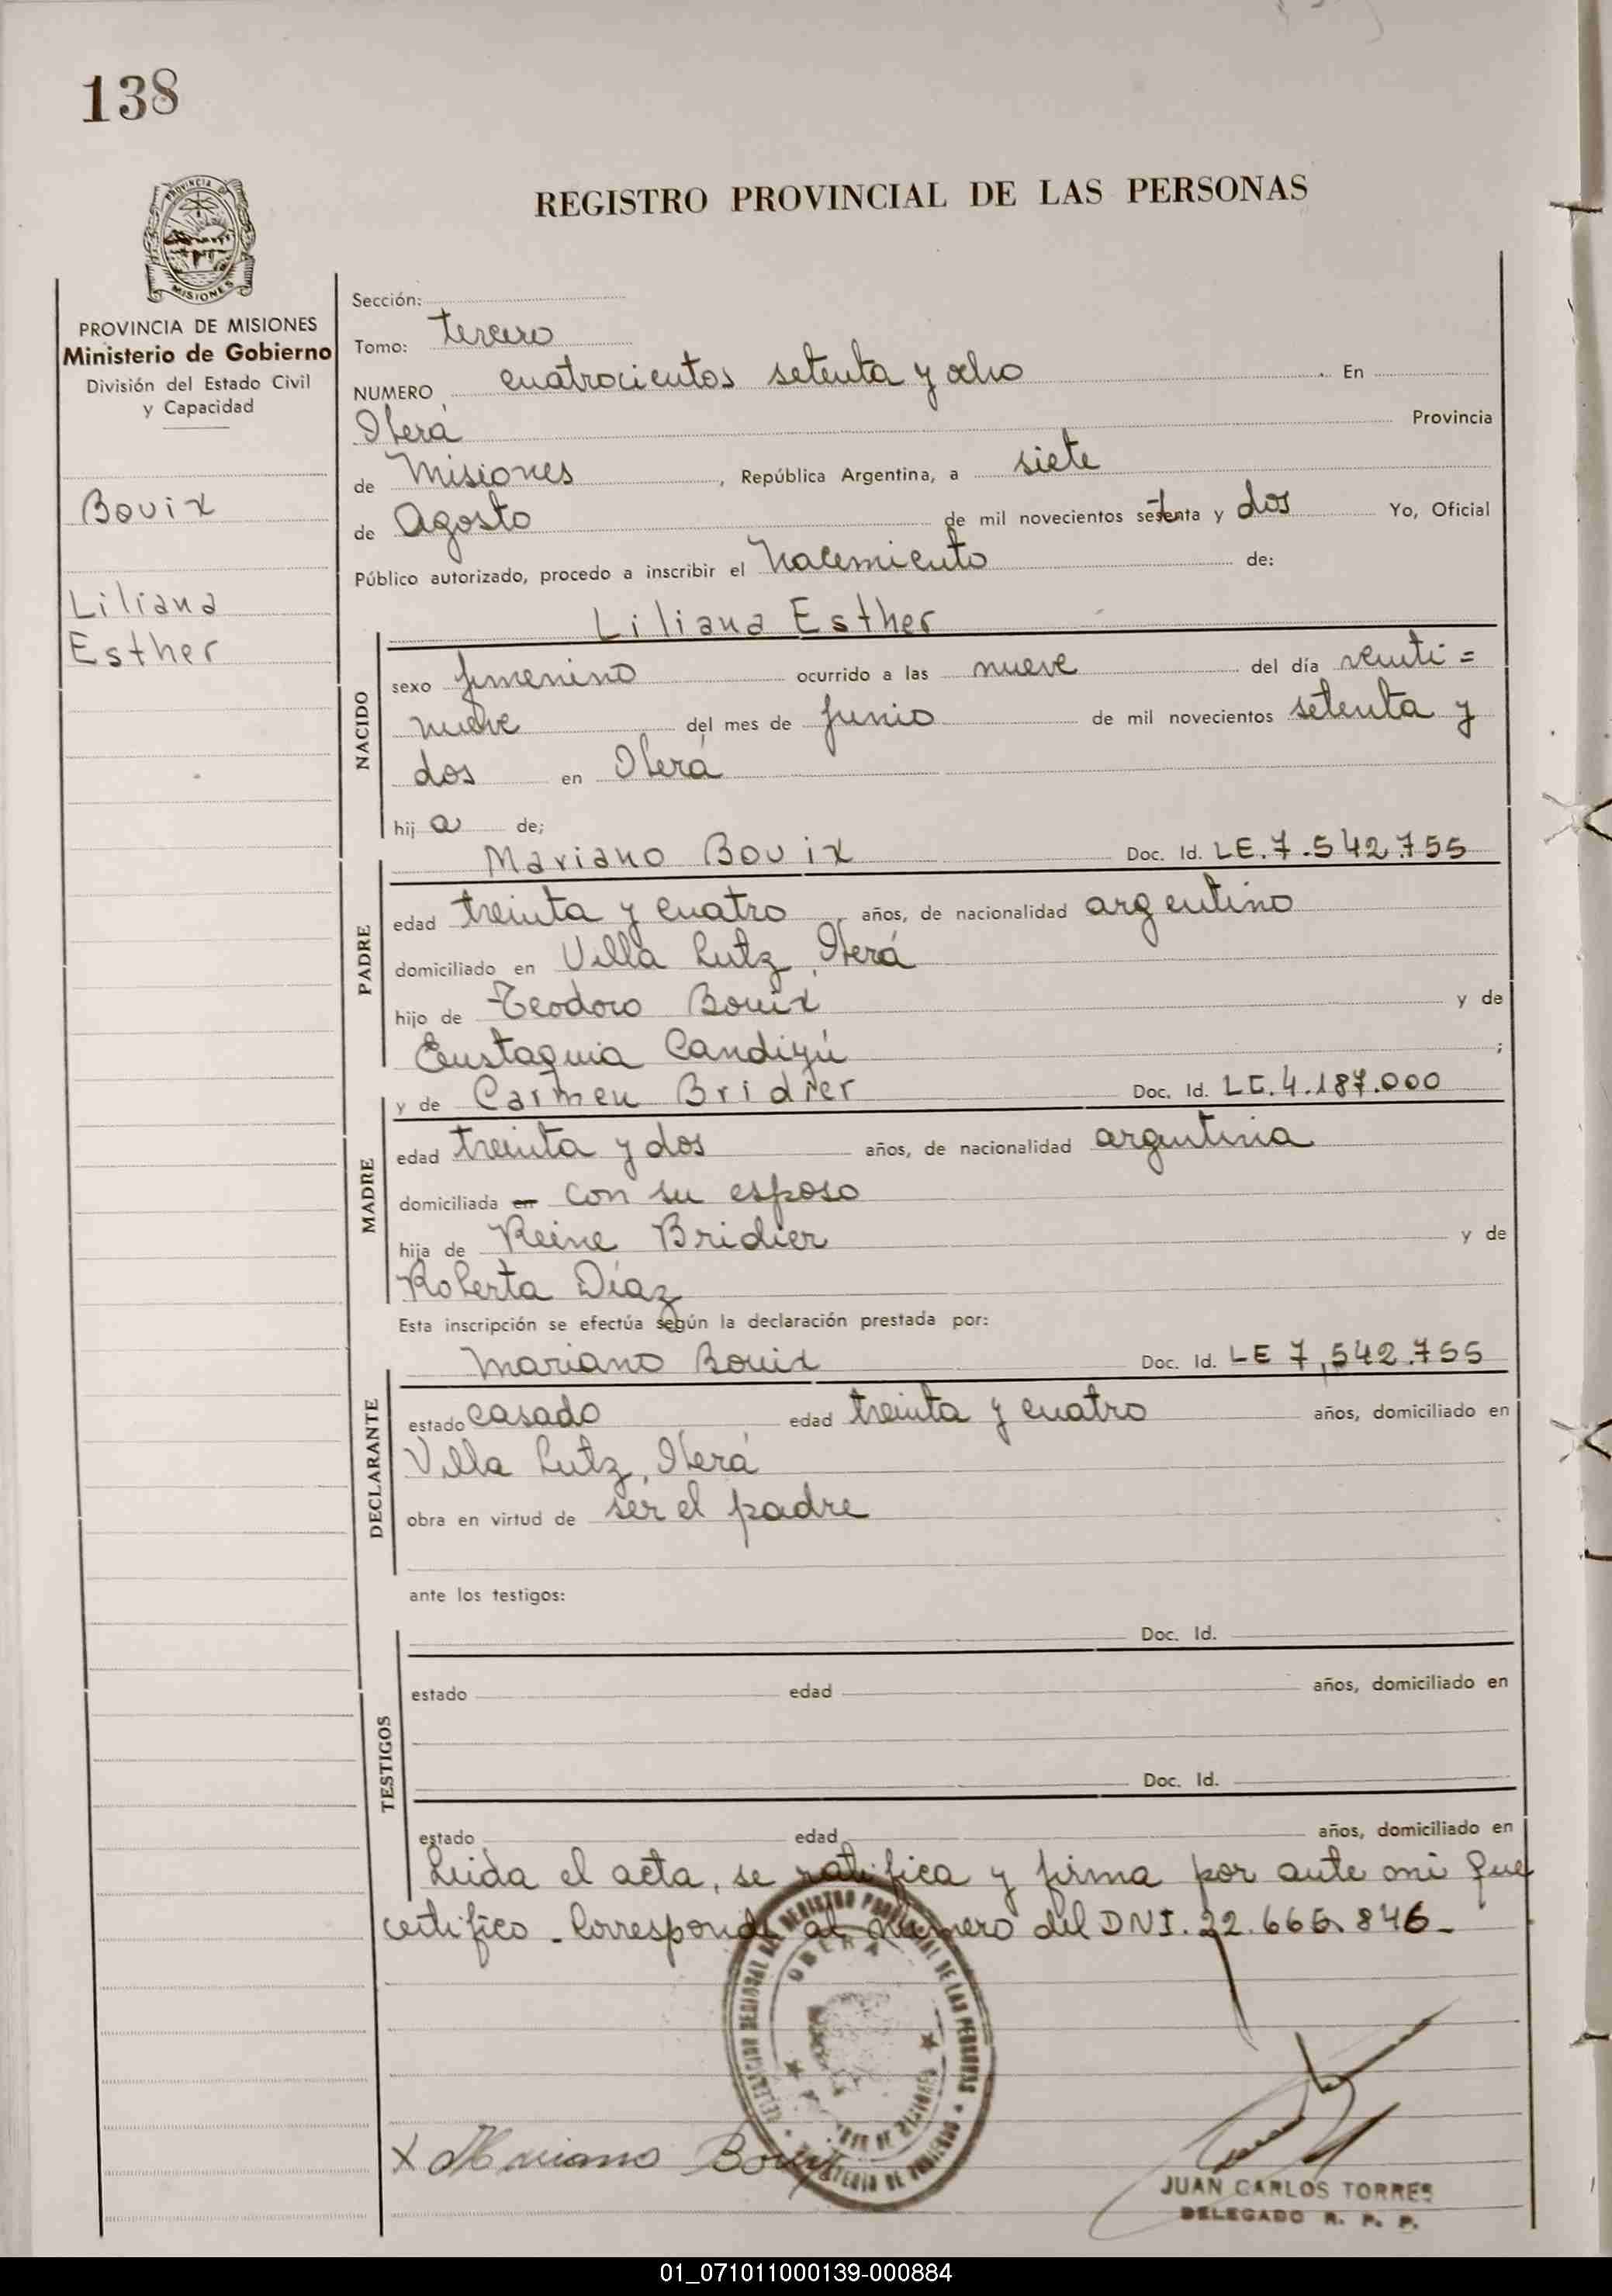 138
PROVINCIA DE
MISIONES
REGISTRO PROVINCIAL DE LAS PERSONAS
PROVINCIA DE MISIONES
Ministerio de Gobierno
División del Estado Civil
y Capacidad
Bouix
Liliana
Esther
Sección:
Tomo: tercero
NUMERO cuatrocientos setenta y ocho . En
Oberá Provincia
de Misiones , República Argentina, a siete
de Agosto de mil novecientos setenta y dos Yo, Oficial
Público autorizado, procedo a inscribir el Nacemiento de:
Liliana Esther
NACIDO
sexo femenino ocurrido a las nueve del día veinti=
nueve del mes de junio de mil novecientos setenta y
dos en Oberá
hij a de;
PADRE
Mariano Bouix Doc. Id. LE. 7.542.755
edad treinta y cuatro años, de nacionalidad argentino
domiciliado en Villa Lutz, Oberá
hijo de Teodoro Bouix y de
Eustaquia Candiyú ;
MADRE
y de Carmen Bridier Doc. Id. LC. 4.187.000
edad treinta y dos años, de nacionalidad argentina
domiciliada en con su esposo
hija de Reine Bridier y de
Roberta Díaz
Esta inscripción se efectúa según la declaración prestada por:
DECLARANTE
Mariano Bouix Doc. Id. LE 7,542.755
estado casado edad treinta y cuatro años, domiciliado en
Villa Lutz, Oberá
obra en virtud de ser el padre
ante los testigos:
TESTIGOS
Doc. Id.
estado edad años, domiciliado en
Doc. Id.
estado edad años, domiciliado en
Leida el acta, se ratifica y firma por ante mi que
certifico - Corresponde al número del DNI. 22.666.846-
OBERA
X Mariano Bouix
JUAN CARLOS TORRES
DELEGADO R. P. P.
01_071011000139-000884